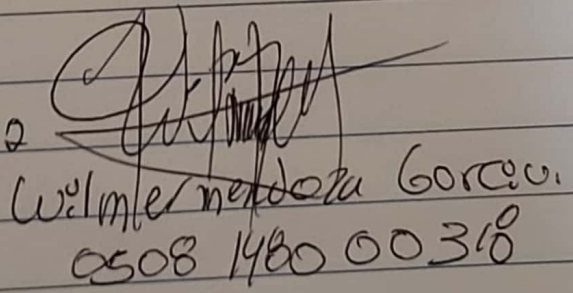 2
Wilmer mendoza Garcia.
0508 1980 00310